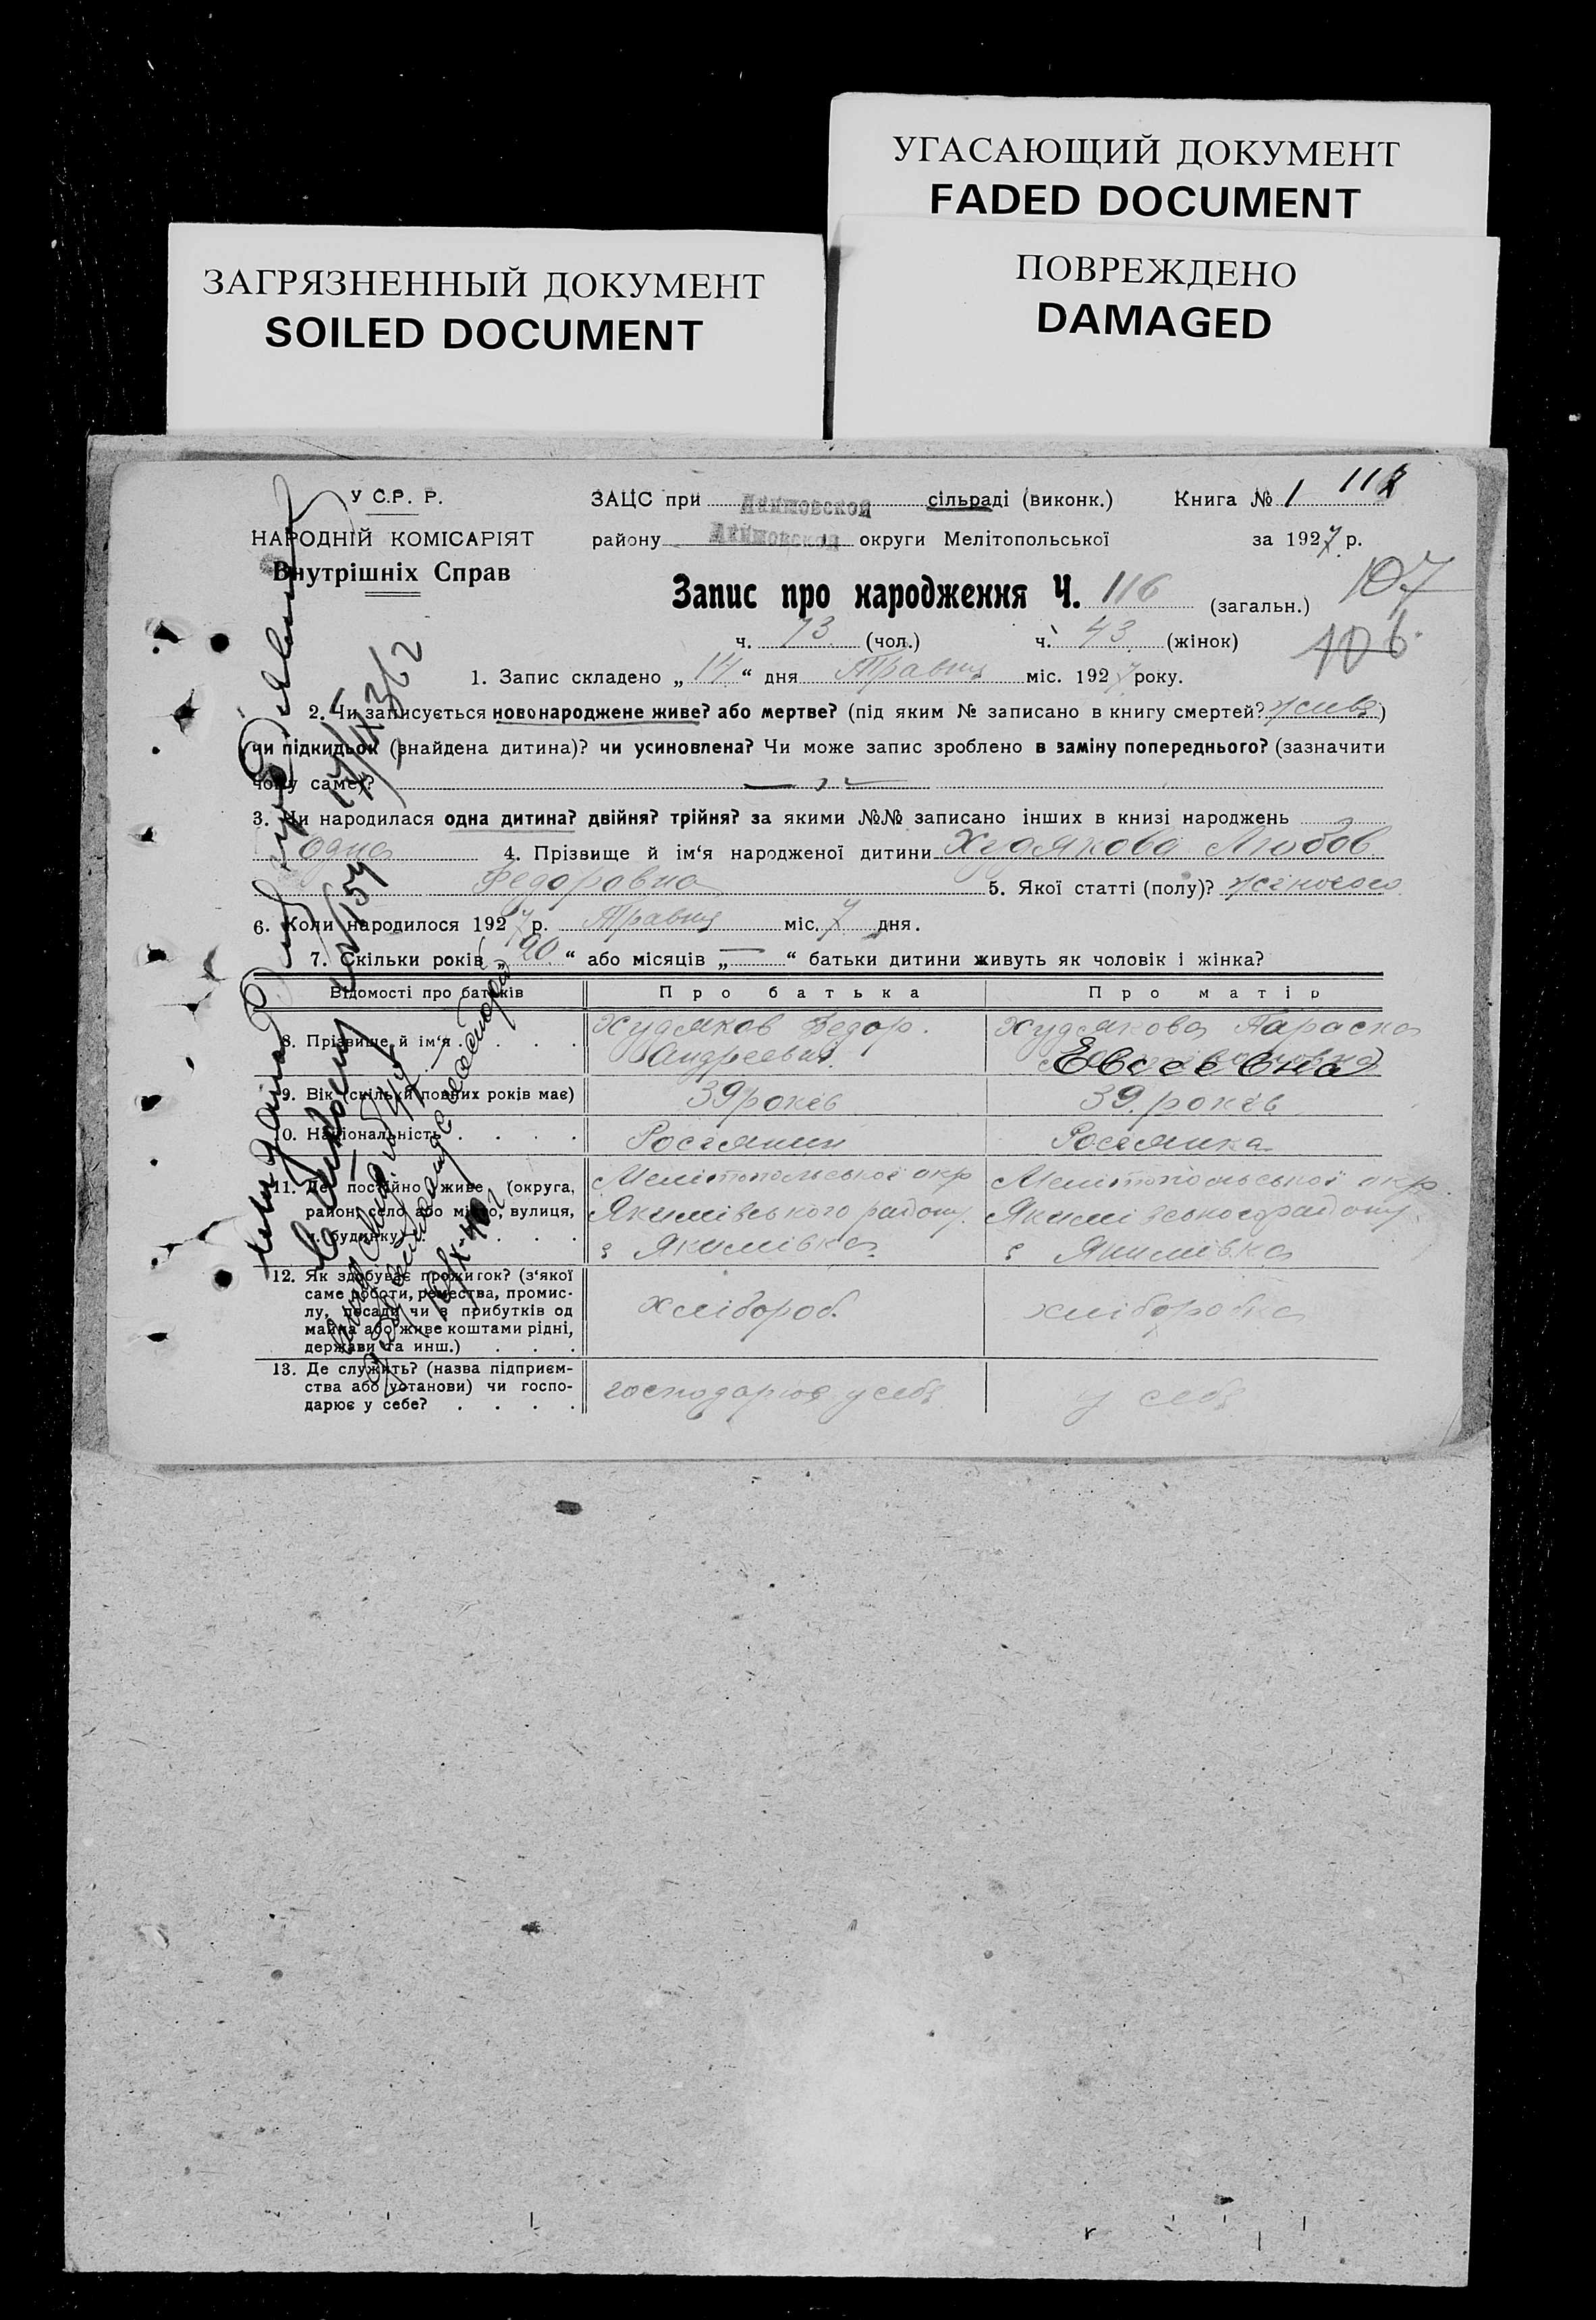 УГАСАЮЩИЙ ДОКУМЕНТ
FADED DOCUMENT
ЗАГРЯЗНЕННЫЙ ДОКУМЕНТ
SOILED DOCUMENT
ПОВРЕЖДЕНО
DAMAGED
У С.Р. Р.
НАРОДНІЙ КОМІСАРІЯТ
Внутрішніх Справ
ЗАЦС при сільраді (виконк.) Книга № 1 112
району округи Мелітопольської за 1927 р.
Запис про народження Ч. 116 (загальн.) 107
ч. 73 (чол.) ч. 43 (жінок) 106
1. Запис складено „14“ дня Травня міс. 1927 року.
2. Чи записується новонароджене живе? або мертве? (під яким № записано в книгу смертей? живе)
чи підкидьок (знайдена дитина)? чи усиновлена? Чи може запис зроблено в заміну попереднього? (зазначити
чому саме)?
3. Чи народилася одна дитина? двійня? трійня? за якими №№ записано інших в книзі народжень
одна 4. Прізвище й ім‘я народженої дитини Худякова Любов
Федоровна 5. Якої статті (полу)? жіночого
6. Коли народилося 1927 р. Травня міс. 7 дня.
7. Скільки років „20“ або місяців „—“ батьки дитини живуть як чоловік і жінка?
Відомості про батьків Про батька Про матір
8. Прізвище й ім‘я Худяков Федор Андреевич Худякова Параска Евсеевна
9. Вік (скільки повних років має) 39 років 39 років
10. Національність Росіянин Росіянка
11. Де постійно живе (округа, район, село або місто, вулиця, ч. будинку) Мелітопольської окр Якимівського району с Якимівка Мелітопольської окр. Якимівського району с Якимівка
12. Як здобуває прожиток? (з‘якої саме роботи, ремества, промислу, посади чи з прибутків од майна або живе коштами рідні, держави та инш.) хлібороб. хліборобка
13. Де служить? (назва підприємства або установи) чи господарює у себе? господарює у себе у себе